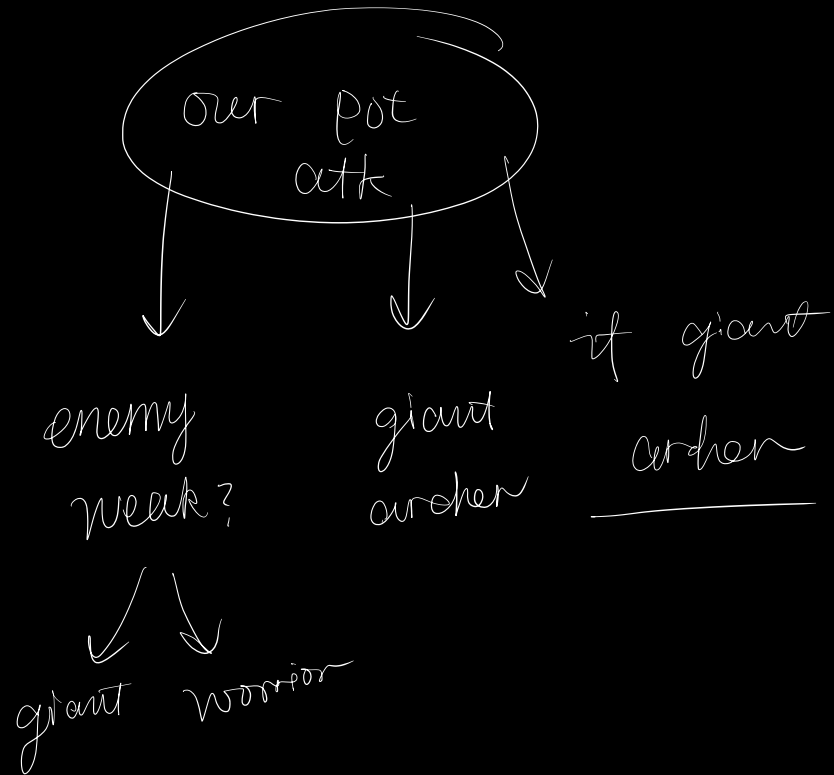 our pot
atk
enemy
weak?
giant
archer
if giant
archer
giant
worrior